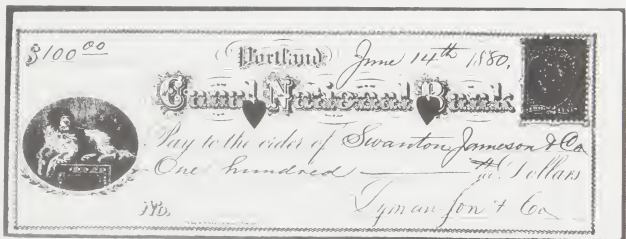 $100 00
Portland June 14th 1880.
National Bank
Pay to the order of Swanton Jameson & Co
One hundred Dollars
No.
Lyman Son & Co